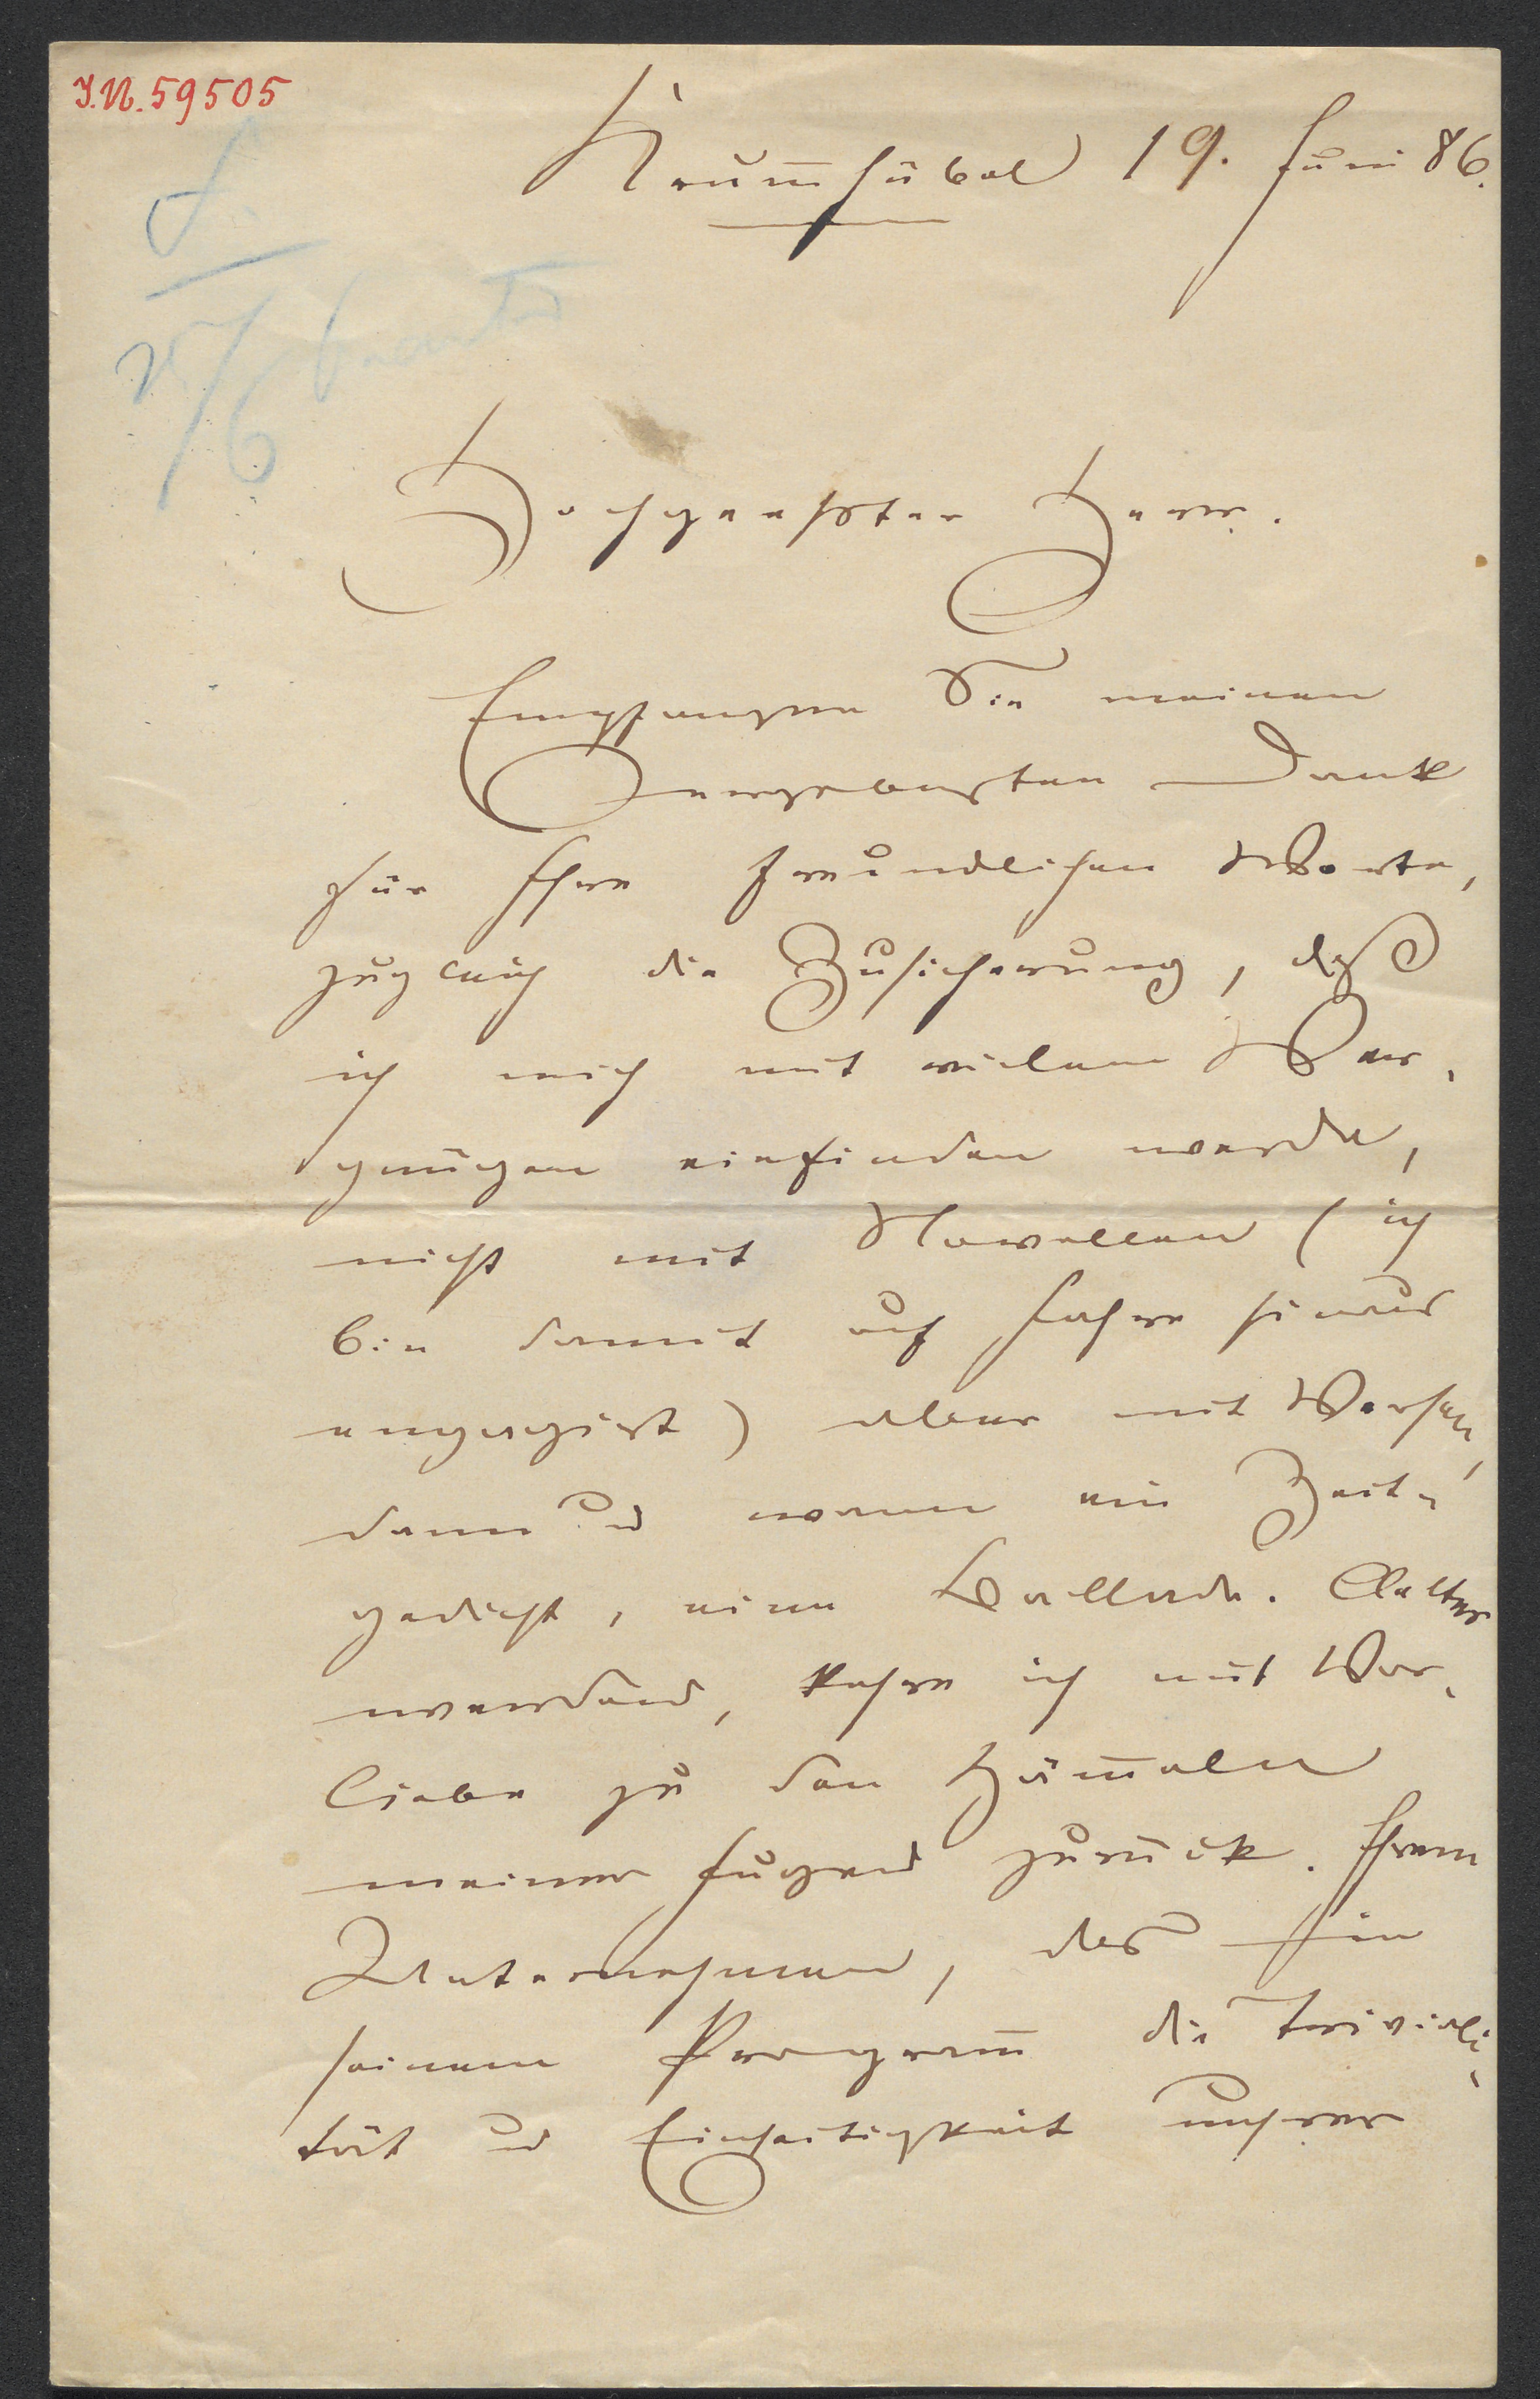 I.N. 59505
Krummhübel 19. Juni 86.
25/6
Hochgeehrter Herr.
Empfangen Sie meinen
ergebensten Dank
für Ihre freundlichen Worte,
zugleich die Zusicherung, daß
ich mich mit vielem Ver-
gnügen einfinden werde,
nicht mit Novellen (ich
bin damit auf Jahre hinaus
engagirt) aber mit Versen,
dann u wann ein Zeit-
gedicht, eine Ballade. Aelter
werdend, kehre ich mit Vor-
liebe zu den Göttern
meiner Jugend zurück. Ihrem
Unternehmen, das in
seinem Programm die Triviali-
tät u Einseitigkeit unsrer